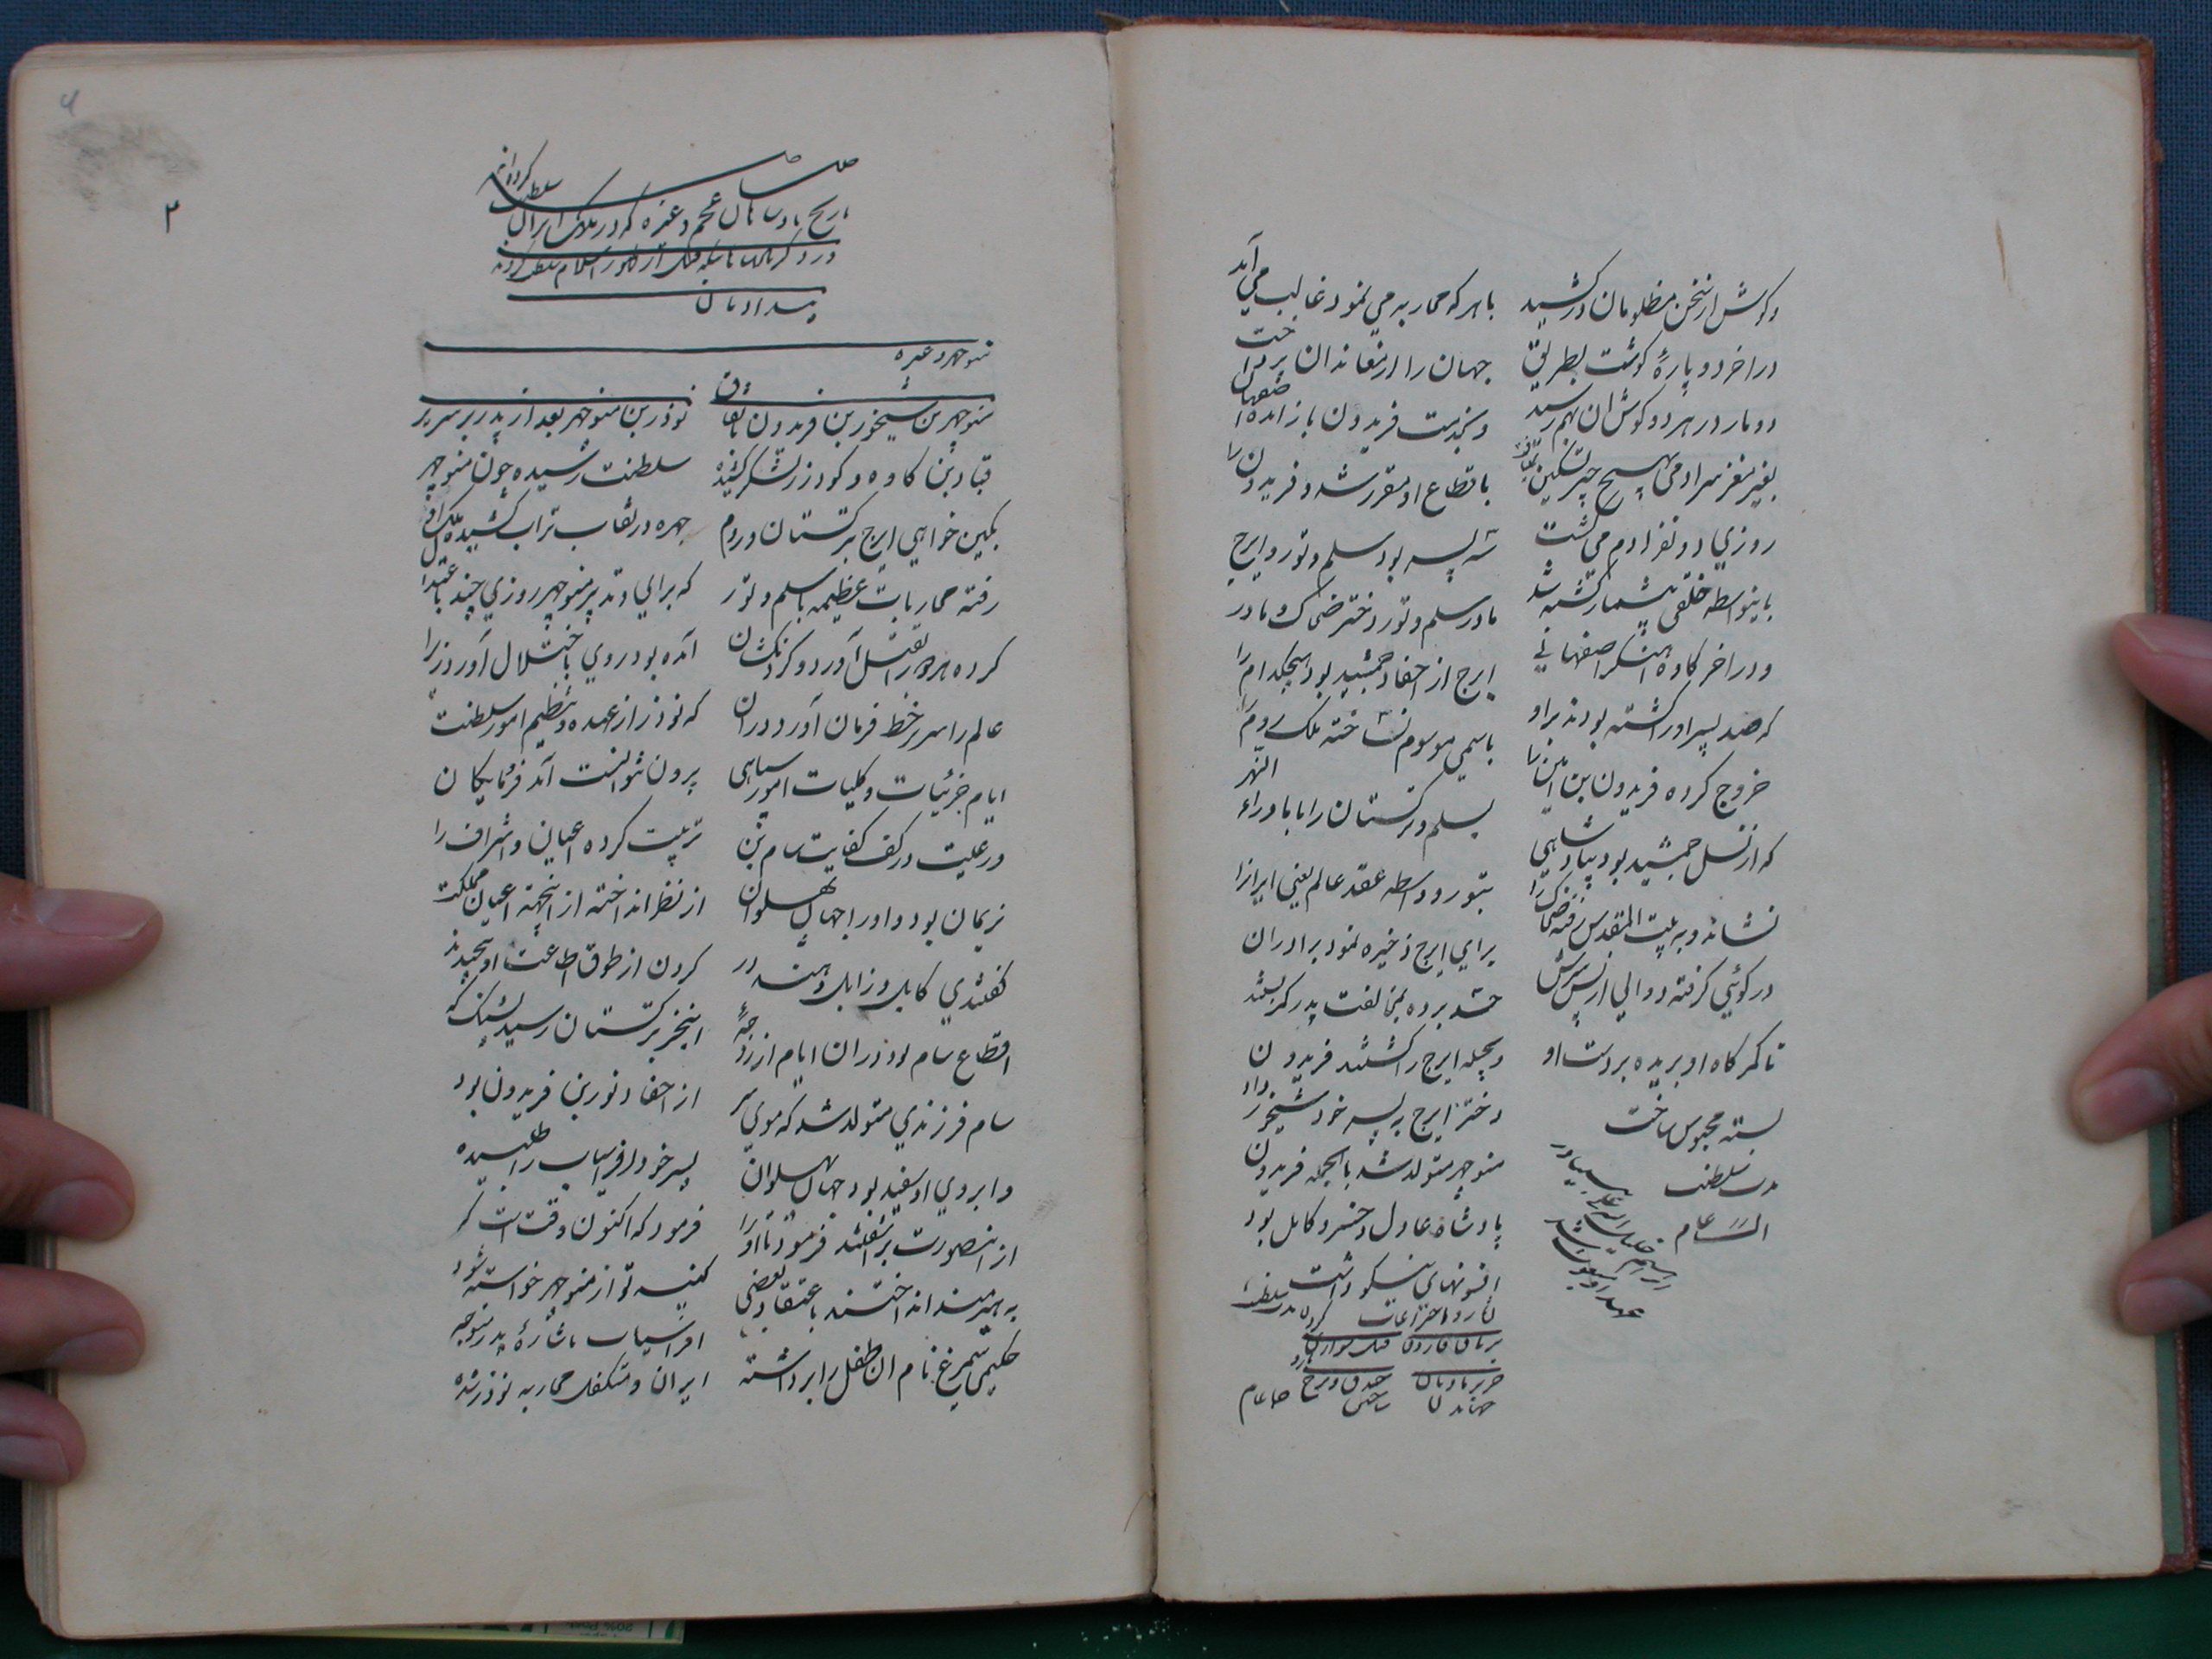 وکوش از سخن مظلومان درکشید
در اخر دو پارهٔ کوشت بطریق
دو مار در هر دو کوش ان بهم رسید
بغیر مغز سر ادمی بهیچ چیز تسکین
روزي دو نفر ادم می کشت
باینواسطه خلقی بیشمار کشته شد
و در اخر کاوه آهنکر اصفهانی
که صد پسر او را کشته بودند بر او
خروج کرده فریدون بن آبتین را
که از نسل جمشید بود بپادشاهی
نشانده و به بیت المقدس رفته ضحاک را
در کوئی کرفته دوالی از پس سرش
تا کمرکاه او بریده بر دست او
بسته محبوس ساخت
مدت سلطنت
عام
با هر که محاربه می نمود غالب می آمد
جهان را از معاندان پرداخت
و بخدمت فریدون باز آمده اصفهان
باقطاع او مقرر شد و فریدون را
سه پسر بود سلم و تور و ایرج
مادر سلم و تور دختر ضحاک و مادر
ایرج از احفاد جمشید بود هیچکدام را
باسمی موسوم نساخته ملک روم را
بسلم و ترکستان را با ماوراء النهر
بتور و واسطه عقد عالم یعنی ایرانرا
برای ایرج ذخیره نمود برادران
حسد برده بمخالفت پدر کمر بستند
و بحیله ایرج را کشتند فریدون
دختر ایرج به پسر خود شیخور داد
منوچهر متولد شد بالجمله فریدون
پادشاه عادل و خسرو کامل بود
افسونهای نیکو دانست
۲
تاریخ پادشاهان عجم و غیره که در ملک ایران سلطنت کرده اند
پیشدادیان
منوچهر و غیره
منوچهر بن شیخور بن فریدون باتفاق
قباد بن کاوه و کودرز لشکر کشیده
بکین خواهي ایرج بترکستان و روم
رفته محاربات عظیمه با سلم و تور
کرده هر دو را بقتل آورد و کردنکشان
عالم را سر بر خط فرمان آورد در ان
ایام جزئیات و کلیات امور سپاهی
و رعیت در کف کفایت سام بن
نریمان بود و او را جهان پهلوان
کفتندی کابل و زابل و هند در
اقطاع سام بود در ان ایام از زوجهٔ
سام فرزندی متولد شد که موی سر
و ابروی او سفید بود جهان پهلوان
از انصورت برآشفتند فرمود تا او را
به هیرمند انداختند باعتقاد بعضی
حکیمی سیمرغ نام ان طفل را برداشته
نوذر بن منوچهر بعد از پدر بر سریر
سلطنت رسیده چون منوچهر
چهره در نقاب تراب کشید ملک او
که برای و تدبیر منوچهر روزی چند باعتدال
آمده بود روی باختلال آورد زیرا
که نوذر از عهده تنظیم امور سلطنت
بیرون نتوانست آمد فرومایکان
تربیت کرده اعیان و اشراف را
از نظر انداخته از اینجهة اعیان مملکت
کردن از طوق اطاعت او پیچیدند
اینخبر بترکستان رسید پشنک که
از احفاد تور بن فریدون بود
پسر خود افراسیاب را طلبیده
فرمود که اکنون وقت انست که
کینه تو از منوچهر خواسته شود
افراسیاب باشارهٔ پدر متوجه
ایران و متکفل محاربه نوذر شده